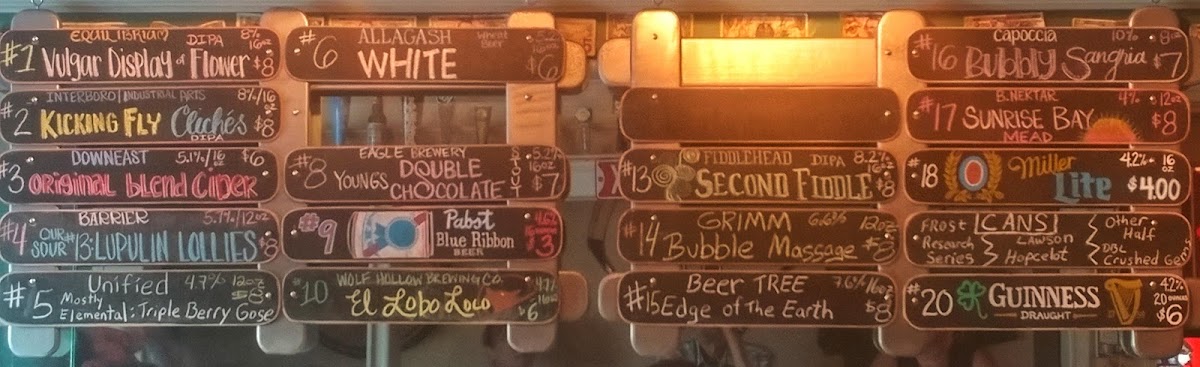 EQUILIBRIUM DIPA 8% 16oz
#1 Vulgar Display of Flower $8
INTERBORO/INDUSTRIAL ARTS 8%/16oz
#2 KICKING FLY Clichés $8
DIPA
DOWNEAST 5.1%/16oz $6
#3 Original Blend Cider
BARRIER 5.7%/12oz
#4 OUR SOUR #13: LUPULIN LOLLIES $8
Unified 4.7% 12oz
#5 Mostly Elemental: Triple Berry Gose $8
ALLAGASH Wheat Beer
#6 WHITE $6
EAGLE BREWERY 5.2%
#8 YOUNGS DOUBLE CHOCOLATE $7
#9 Pabst
Blue Ribbon
BEER $3
WOLF HOLLOW BREWING CO.
#10 El Lobo Loco $6
FIDDLEHEAD DIPA 8.2%
#13 SECOND FIDDLE $8
GRIMM 12oz
#14 Bubble Massage $8
Beer TREE 7.6%/16oz
#15 Edge of the Earth $8
CAPOCCIA 10% 8oz
#16 Bubbly Sangria $7
B.NEKTAR 4% 12oz
#17 SUNRISE BAY $8
MEAD
#18 Miller Lite 4.2% 16oz $4.00
FROST Research Series
CANS
LAWSON Hopcelot
Other Half
DBL Crushed Gems
#20 GUINNESS 4.2%
DRAUGHT 20 $6